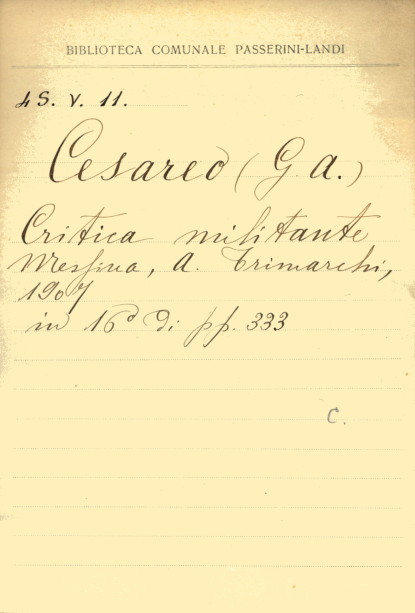 BIBLIOTECA COMUNALE PASSERINI-LANDI
4S. V. 11.
Cesareo (G. A.)
Critica militante
Messina, A. Trimarchi,
1907
in 16° di pp. 333
C.